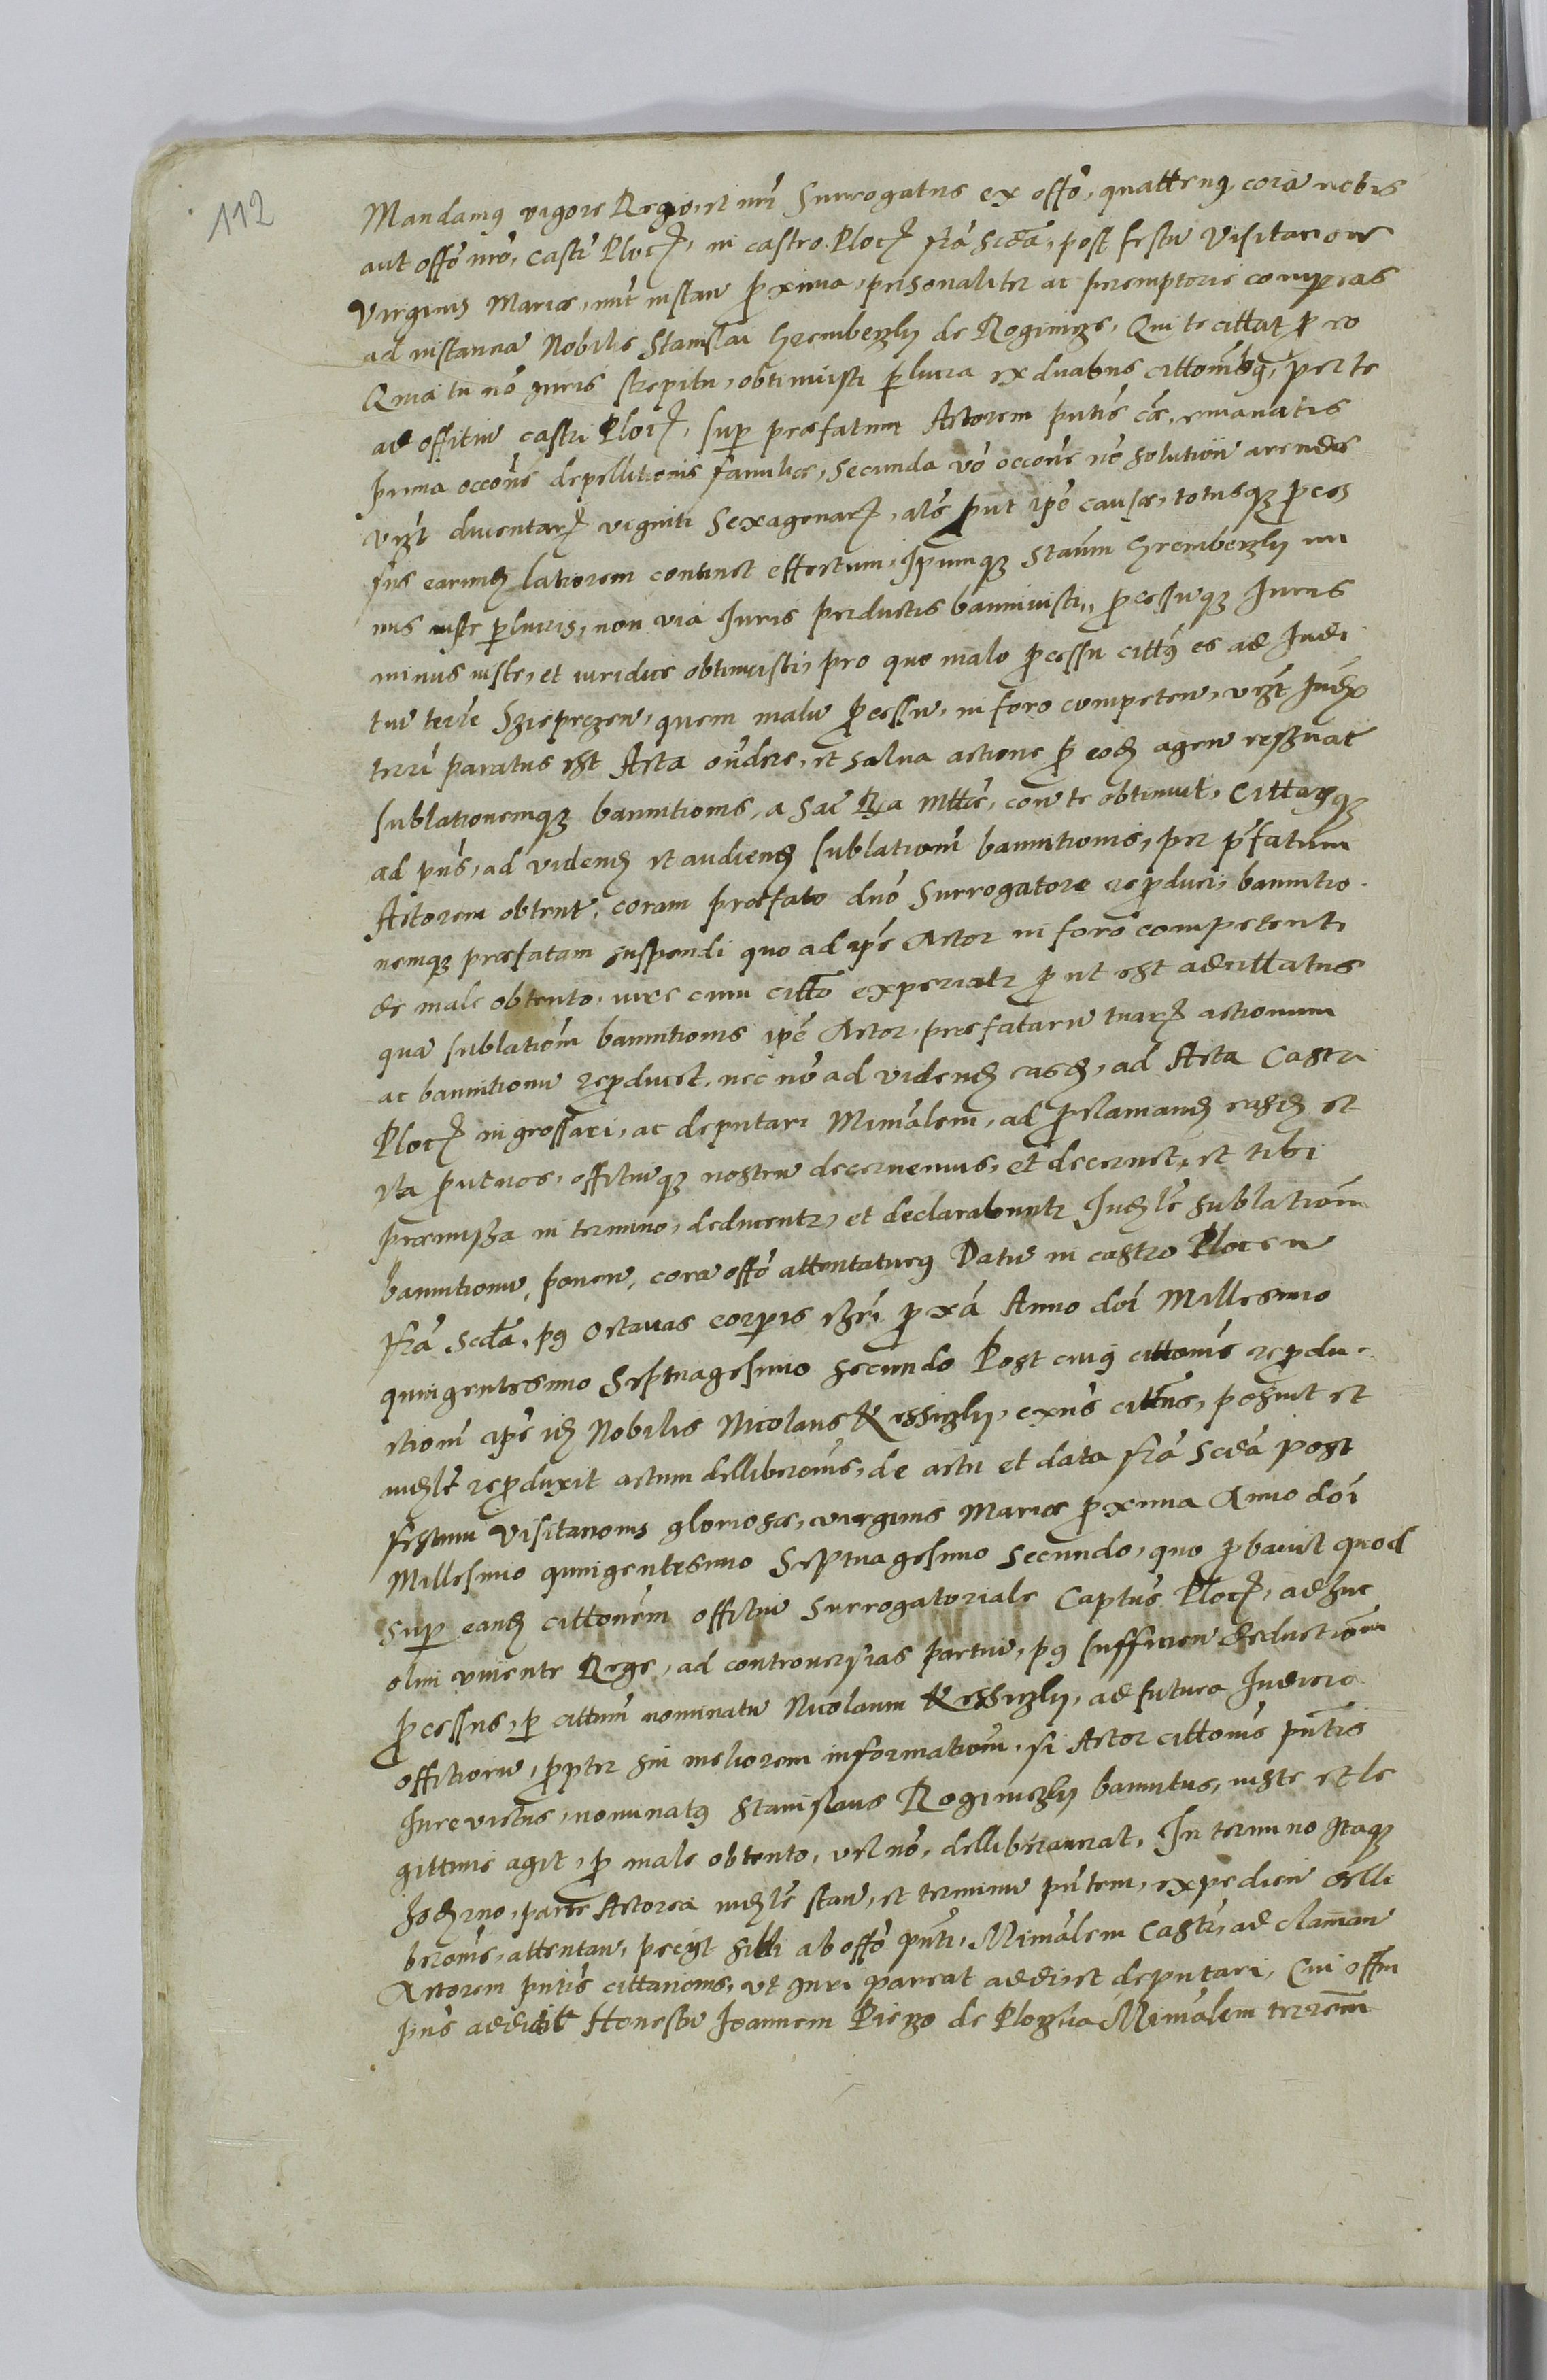 112
Mandamus vigore Regio, et nri Surrogatus ex offo, quattenus cora nobis
aut offo nro, castri Plocz, in castro Plocz fria scda, post festu Visitacionis
Virginis Mariæ, nunc instan proxima, personaliter ac peremptorie compareas
ad instancia Nobilis Stanislai Grembezky de Rogimze, Qui te cittat pro eo
Quia tu no iuris strepitu, obtinuisti per lucra ex duabus cittonibus, per te
ad offitiu castri Plocz, super præfatum Actorem putis cæ, emanatis
prima occone depellitionis familiæ, secunda vo occone no solution arendæ
vizt ducentarz viginti Sexagenarz, als prut ipe causæ, totusqz proces
sus earundz latiorem continet effectum, Ipumqz Staum Grembezky mi
nus iuste perlucris, non via Iuris perductis bannivisti, processuqz Iuris
minus iuste, et iuridice obtinuisti, pro quo malo processu cittus es ad Iudi
tiu terre Szieprczen, quem malu processu, in foro competen, vizt Iudz
terri paratus est Acta ondere, et salua actione pro eodz agen reseruat
sublationemqz bannitionis, a Sac Rya Mtte, con te obtinuit, Cittarqz
ad pns, ad videndz et audiendz sublationem bannitionis, per præfatum
Actorem obtent, coram præfato dno Surrogatore reproduci, bannitio
nemqz præfatam suspendi quo ad ipe Actor in foro competenti
de male obtento, iure cum citto experiatr prout est adcittatus
qua sublationem bannitionis ipe Actor, præfataru tuarz actionum
ac bannitionu reproducet, nec no ad videndz easdz, ad Acta Castri
Plocz ingrossari, ac deputari Minralem, ad proclamandz easdz et
ita prout nos, offitiuqz nostru decernemus, et decernet, et tibi
præmissa in termino, deducentr, et declarabuntr Iudzle sublationem
bannitionu, ponen, cora offo attentaturus Datu in castro Plocen
fria Scda, post Octavas corporis Xri proxa Anno doi Millesimo
quingentesimo Septuagesimo secundo Post cuius cittonis reprodu
ctionem ipe idz Nobilis Nicolaus Kessizky, exns cittus, posuit et
iudzle reproduxit actum dellibereonis, de actu et data fria Scda post
festum Visitacionis gloriosæ, virginis Mariæ proxima Anno doi
Millesimo quingentesimo Septuagesimo Secundo, quo probauit quod
super eandz cittonem offitiu Surrogatoriale Captus Plocz, adhuc
olim viuente Rege, ad controuersias partiu, post sufficien deductionem
processus, per cittum nominatu Nicolaum Kessizky, ad futura Iudicia
offitioru, propter sui meliorem informationem, si Actor cittonis putis
Iure victus, nominatus Stanislaus Rogimczky bannitus, iuste et le
gittime agit, pro male obtento, vel no, delliberauerat, In termino Itaqz
hodierno, parte Actorea iudzle stan, et terminu putem, expedien delli
beronis, attentan, peciyt sibi ab offo puti, Minralem Castri, ad claman
Actorem putis cittationis, vt Iuri pareat addi et deputari, Cui offm
pns addidit Honestu Joannem Piezo de Plozka Minralem terrem